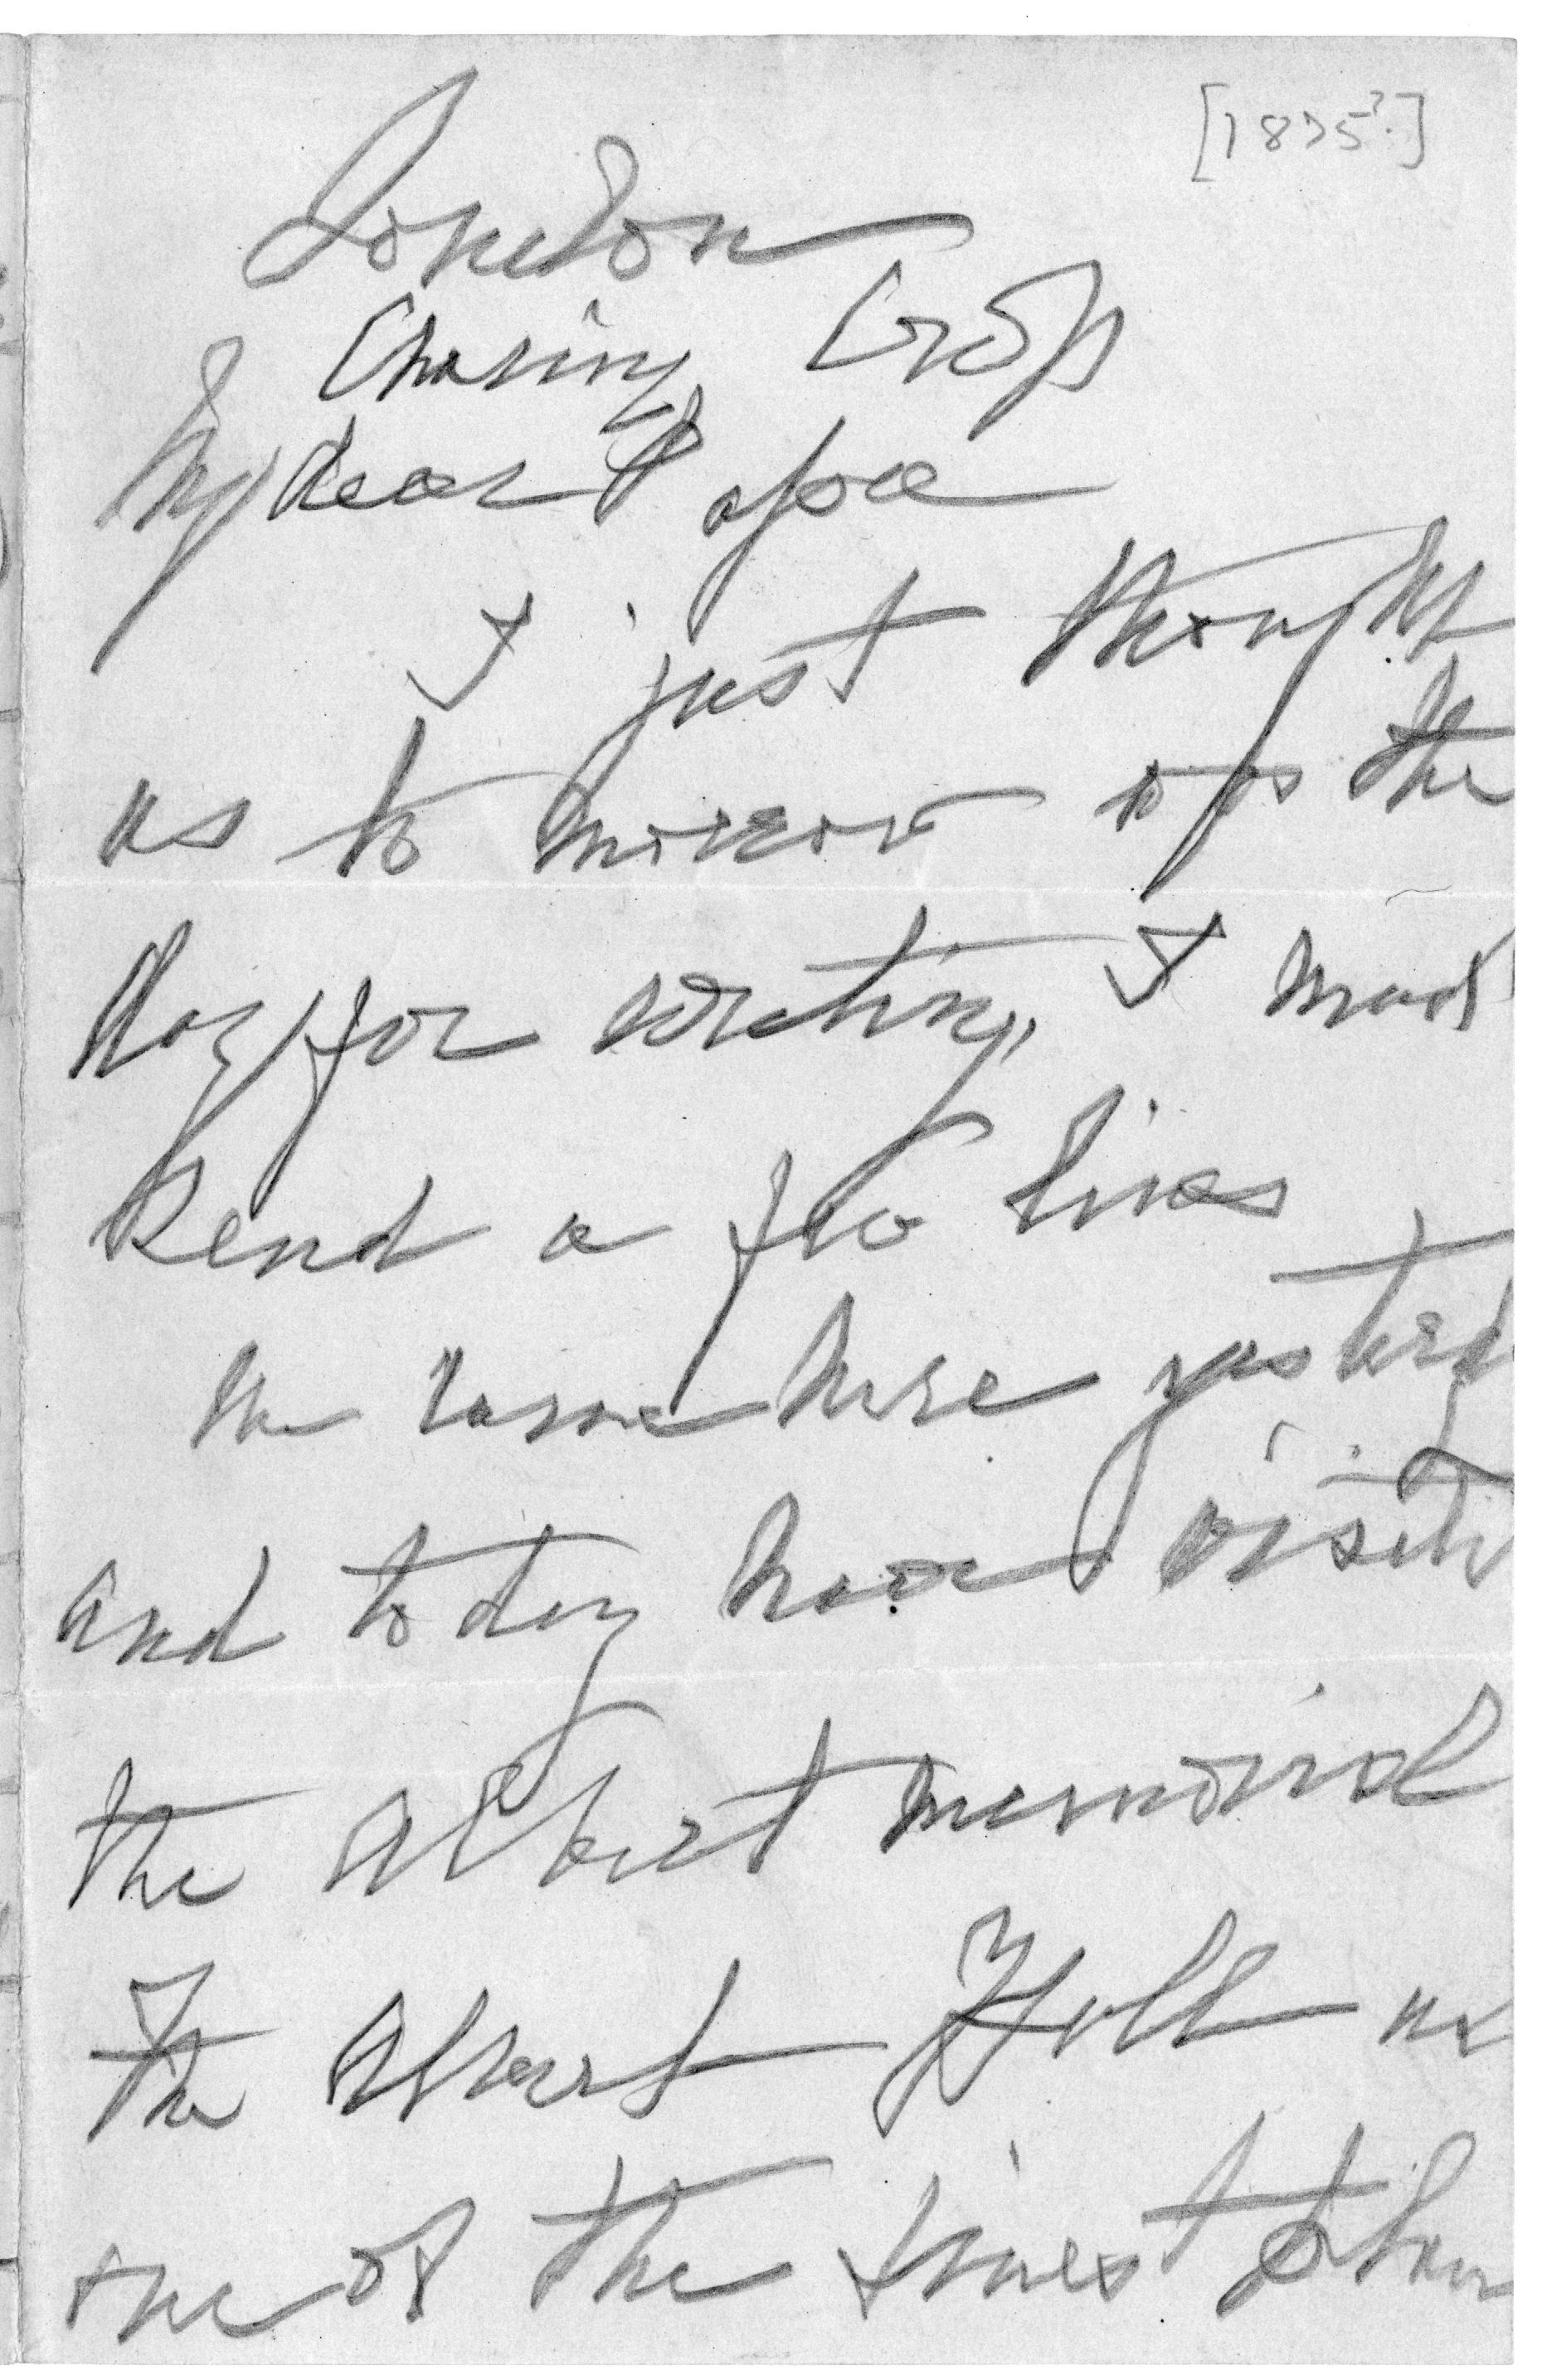 [1875?]
London
Charing Cross
My dear Papa
I just thought
as to morrow is the
day for writing, I would
send a few lines
We came here yesterd
and to day have visited
the Albert memorial
The Albert Hall is
one of the finest